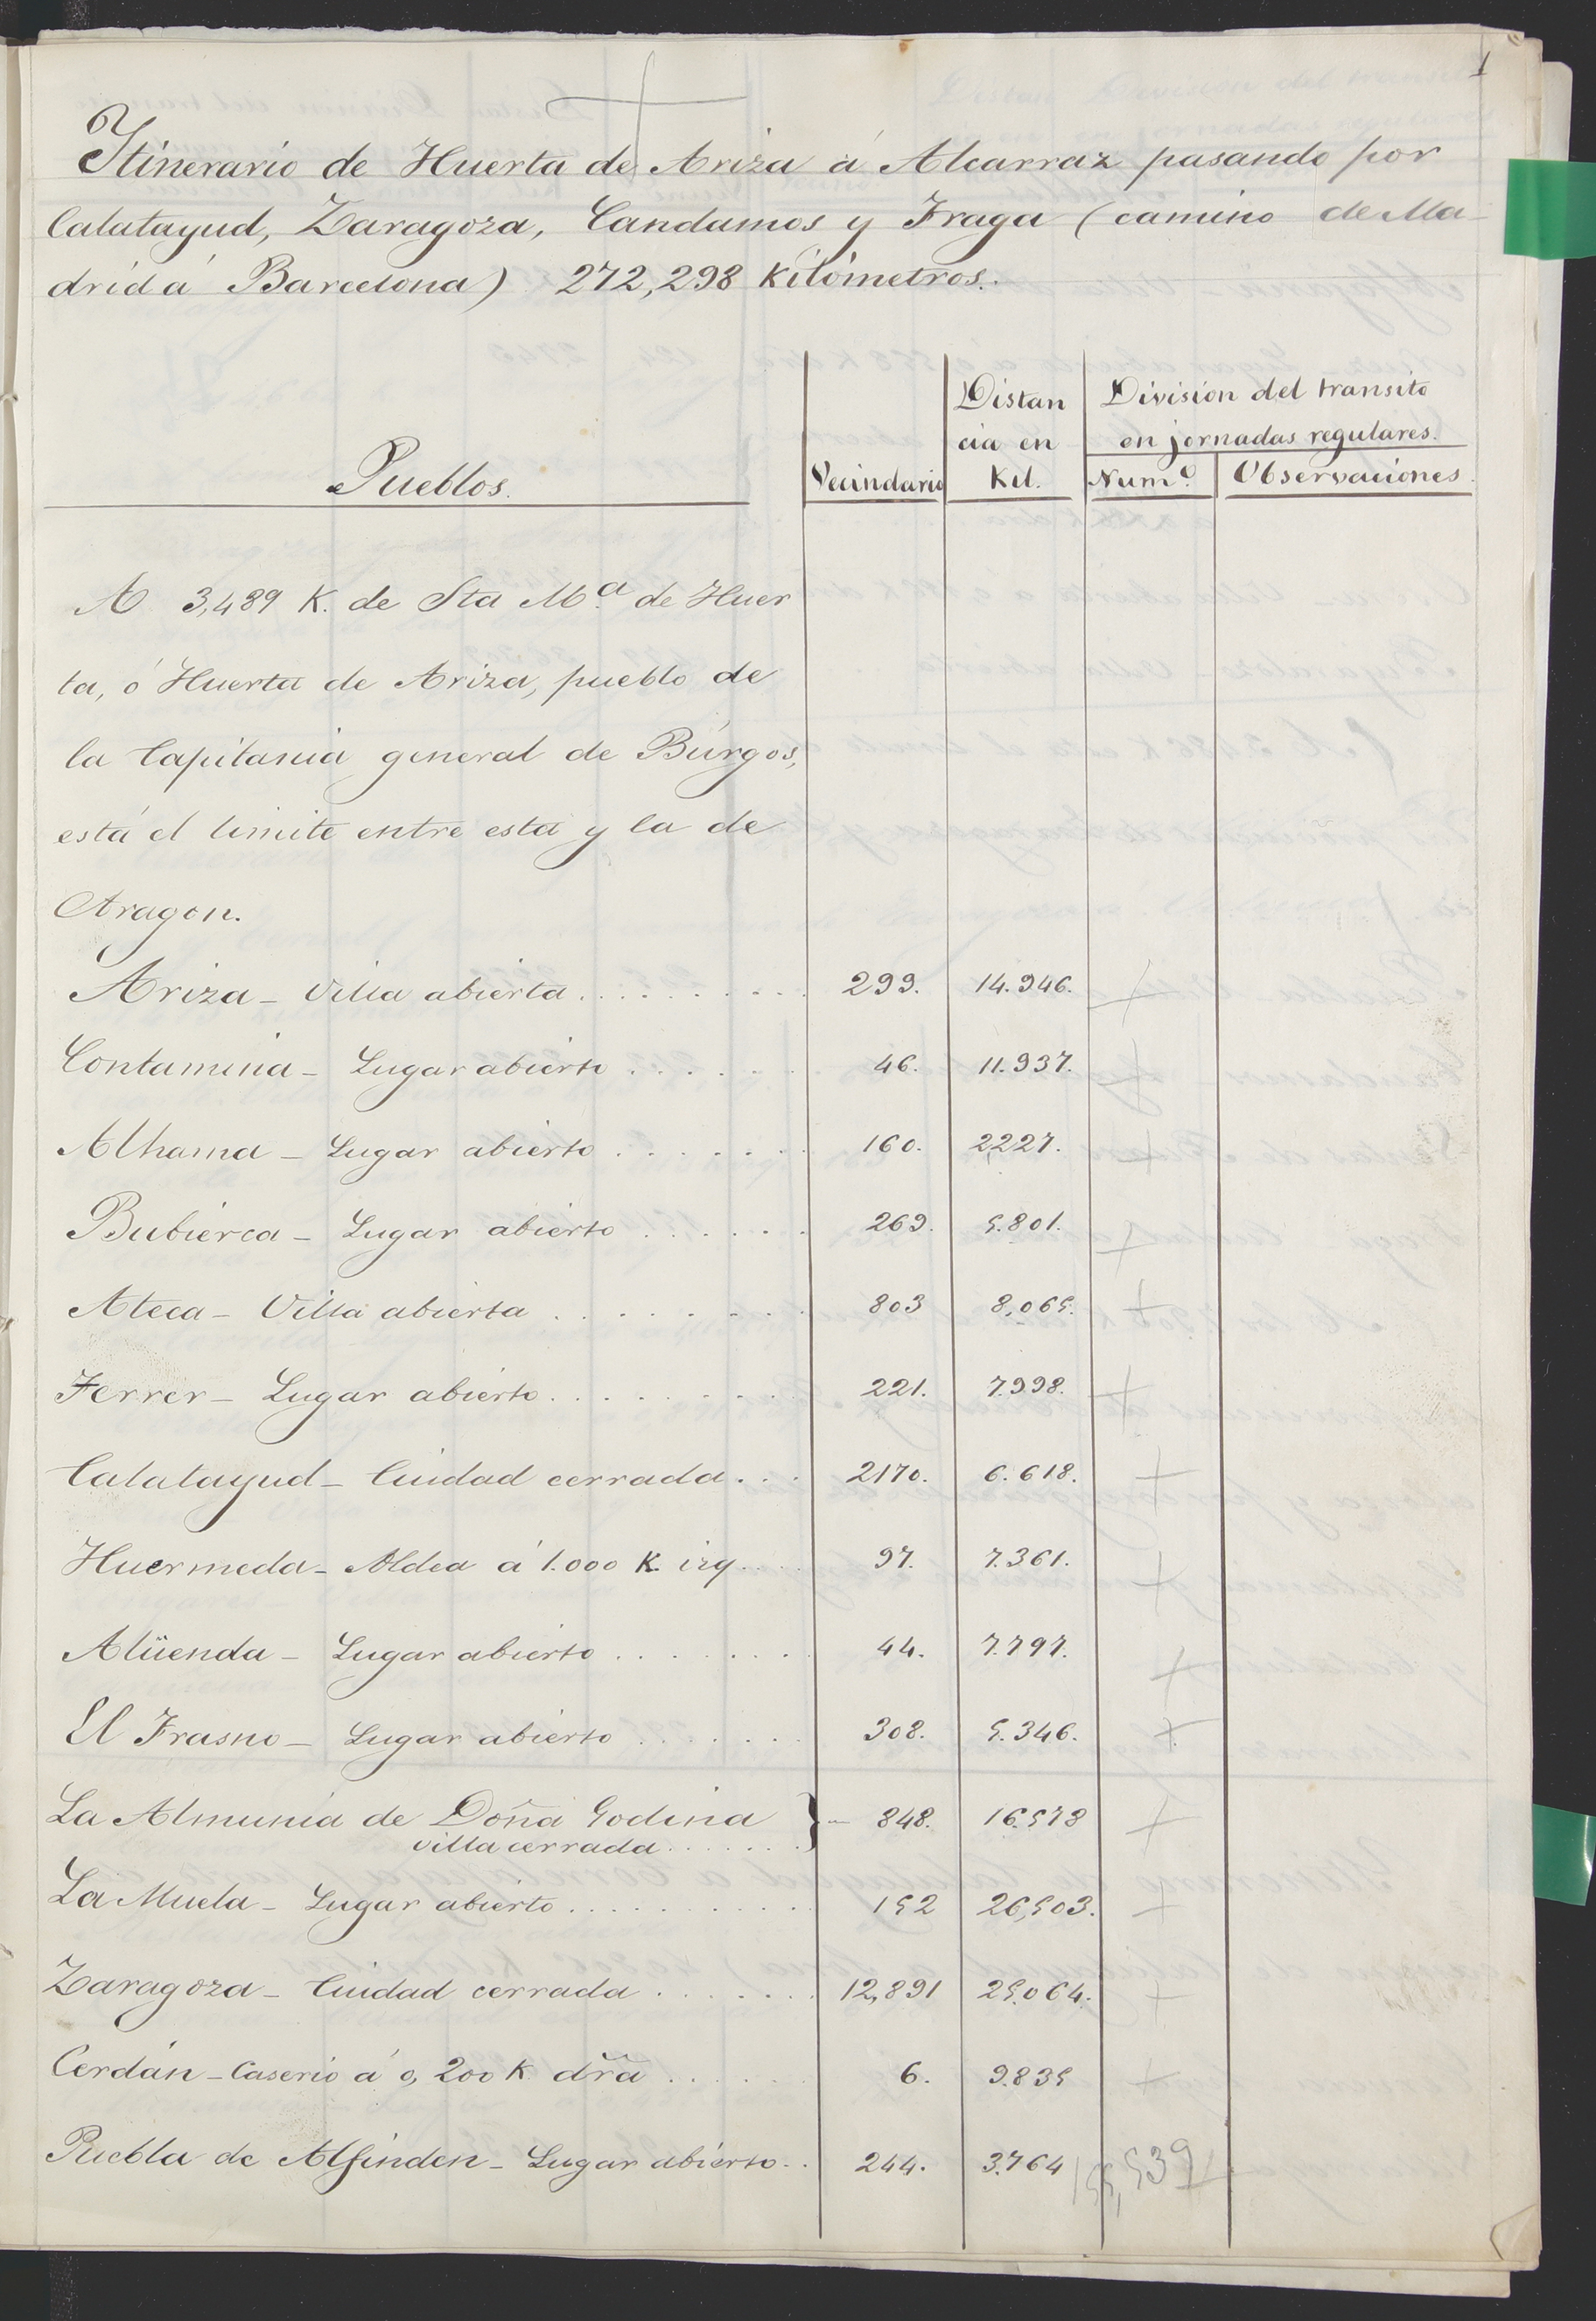 1
Itinerario de Huerta de Ariza á Alcarraz pasando por
Calatayud, Zaragoza, Candasnos y Fraga (camino de Ma-
drid á Barcelona) 272,298 Kilómetros.
Pueblos.
Vecindario
Distan
cia en
Kil.
División del transito
en jornadas regulares.
Numº.
Observaciones
A 3,489 K. de Sta Mª. de Huer
ta, ó Huerta de Ariza, pueblo de
la Capitania general de Búrgos,
está el limite entre esta y la de
Aragon.
Ariza - Villa abierta . . . . . . . . . 299. 14.946.
Contamina - Lugar abierto . . . . . . 46. 11.937.
Alhama - Lugar abierto . . . . . . . 160. 2,227.
Bubierca - Lugar abierto . . . . . . 269. 5.801.
Ateca - Villa abierta . . . . . . . . 803 8,065.
Ferrer - Lugar abierto . . . . . . . . 221. 7.998.
Calatayud - Ciudad cerrada . . . 2170. 6.618.
Huermeda - Aldea á 1.000 K. izq . . . 97. 7.361.
Alüenda - Lugar abierto . . . . . . . 44. 7.797.
El Frasno - Lugar abierto . . . . . . . 308. 5.346.
La Almunia de Doña Godina } 848. 16.578
villa cerrada . . . . . .
La Muela - Lugar abierto . . . . . . . . . . 152 26,503.
Zaragoza - Ciudad cerrada . . . . . . . 12,891 25.064.
Cerdán - Caserio á 0,200 K dr̃a . . . . . . 6. 9.835
Puebla de Alfinden - Lugar abierto . . 244. 3.764